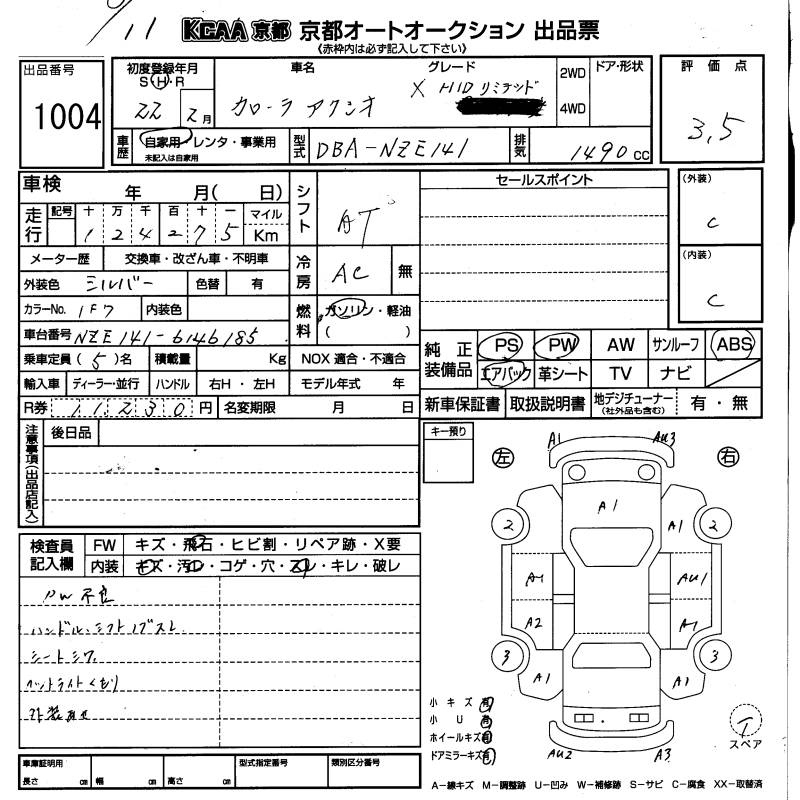 11
KCAA 京都 京都オートオークション 出品票
《赤枠内は必ず記入して下さい》
出品番号 1004
初度登録年月 S H R 22年 2月
車名 カローラ アクシオ
グレード X HIDリミテッド
2WD 4WD
ドア・形状
評価点 3,5
車歴 自家用・レンタ・事業用
未記入は自家用
型式 DBA-NZE141
排気 1490 cc
車検 年 月( 日)
シフト AT
セールスポイント
(外装) C
(内装) C
走行 記号 十 万 千 百 十 一 マイル Km
1 2 4 2 7 5
メーター歴 交換車・改ざん車・不明車
冷房 AC 無
外装色 シルバー 色替 有
カラーNo. 1F7 内装色
燃料 ガソリン・軽油 ( )
車台番号 NZE141-6146185
乗車定員 (5)名 積載量 Kg NOX 適合・不適合
輸入車 ディーラー・並行 ハンドル 右H・左H モデル年式 年
R券 11230円 名変期限 月 日
純正装備品 PS PW AW サンルーフ ABS
エアバック 革シート TV ナビ
新車保証書 取扱説明書 地デジチューナー (社外品も含む) 有・無
注意事項(出品店記入)
後日品
キー預り
検査員記入欄
FW キズ・飛石・ヒビ割・リペア跡・X要
内装 キズ・汚レ・コゲ・穴・スレ・キレ・破レ
PW 不良
ハンドル、シフトノブスレ
シートシワ
ヘッドライトくもり
外装あせ
左 右
A1 AU3
A1
2 A1 2
A1 AU1
A2 A1
3 3
A1 A1
AU2 A3
小キズ 有
小U 有
ホイールキズ 有
ドアミラーキズ 有
T
スペア
車庫証明用 長さ cm 幅 cm 高さ cm
型式指定番号
類別区分番号
A-線キズ M-調整跡 U-凹み W-補修跡 S-サビ C-腐食 XX-取替済